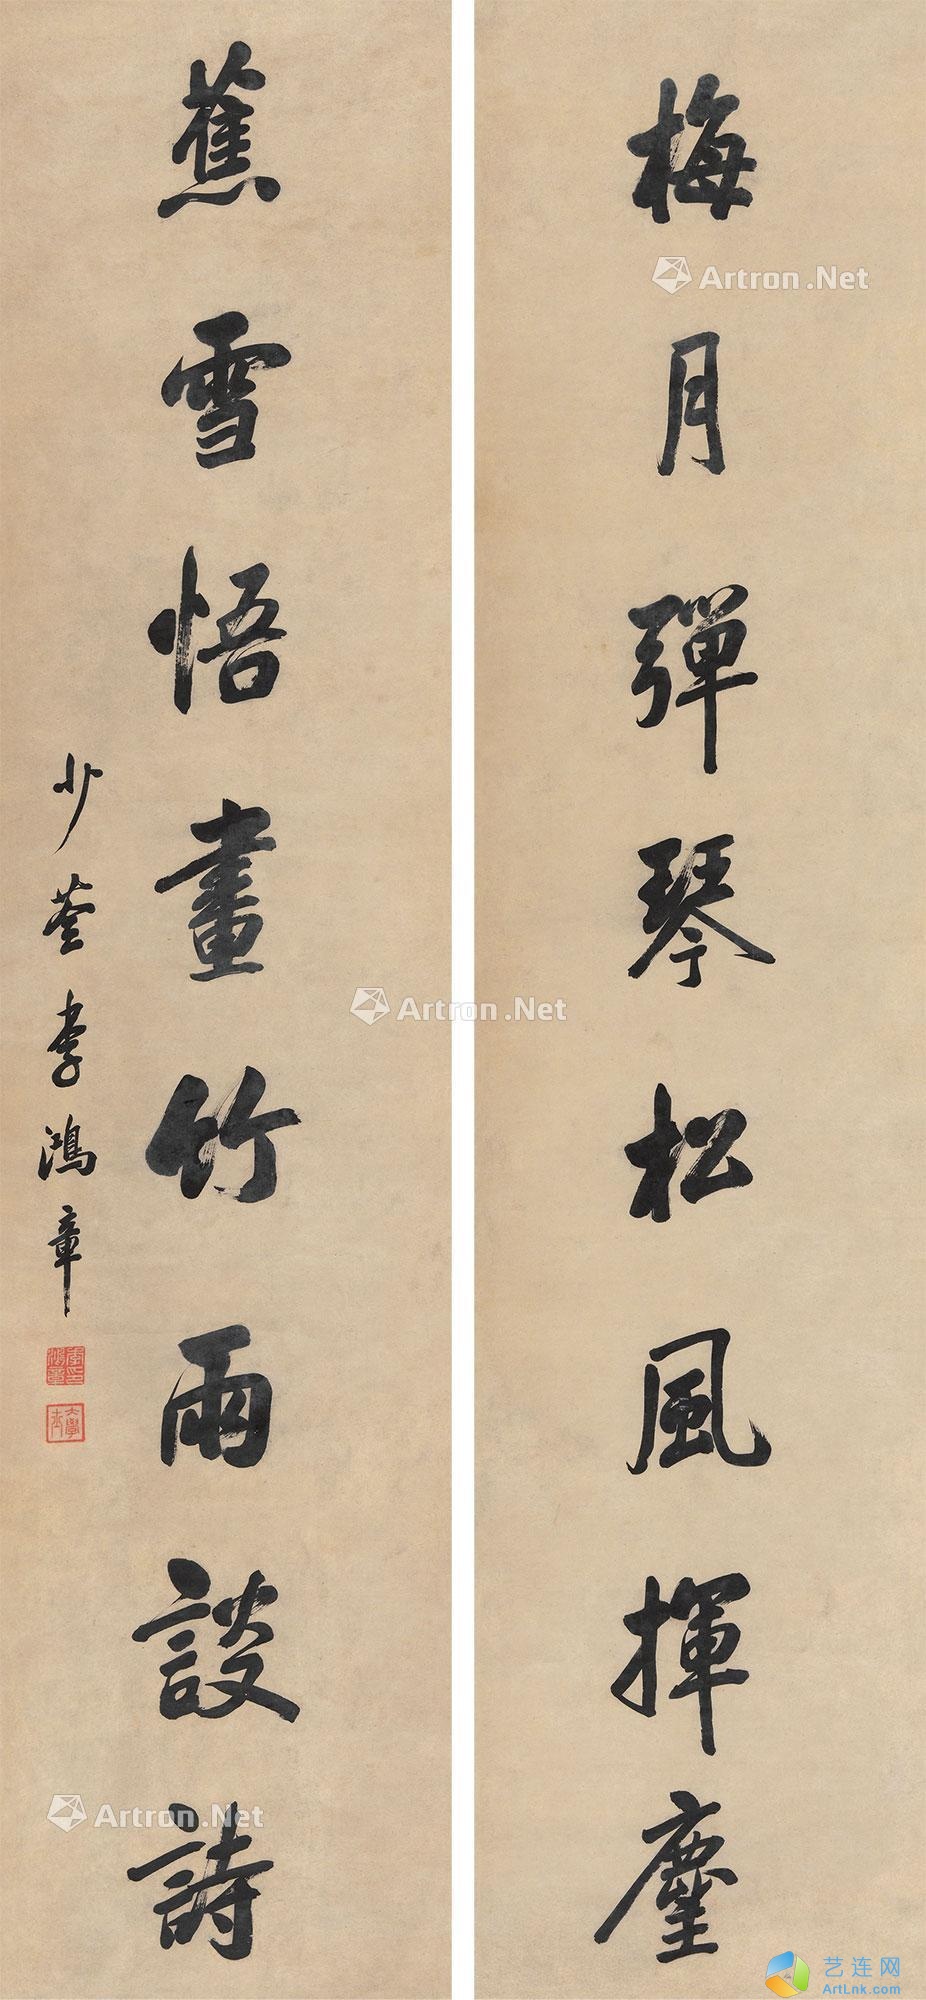 梅月彈琴松風揮麈
蕉雪悟畫竹雨談詩
少荃李鴻章
李鴻章印
大學士
Artron.Net
Artron.Net
Artron.Net
艺连网
ArtLnk.com